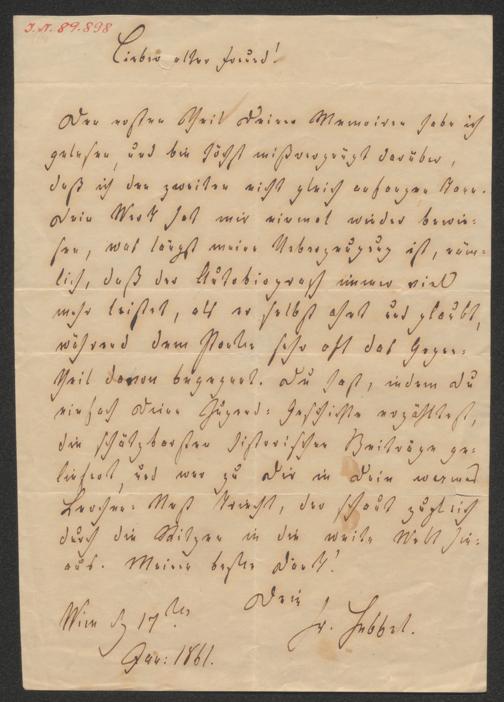 J.N. 89.898
Lieber alter Freund!
Den ersten Theil Deiner Memoiren habe ich
gelesen, und bin höchst mißvergnügt darüber,
daß ich den zweiten nicht gleich anfangen kann.
Dein Werk hat mir einmal wieder bewie-
sen, was längst meine Ueberzeugung ist, näm-
lich, daß der Autobiograph immer viel
mehr leistet, als er selbst ahnt und glaubt,
während dem Poeten sehr oft das Gegen-
theil davon begegnet. Du hast, indem Du
einfach Deine Jugend-Geschichte erzähltest,
die schätzbarsten historischen Beiträge ge-
liefert, und wer zu Dir in Dein warmes
Lerchen-Nest kriecht, der schaut zugleich
durch die Ritzen in die weite Welt hin-
aus. Meinen besten Dank!
Dein
Wien d 17ten Fr. Hebbel.
Jan: 1861.